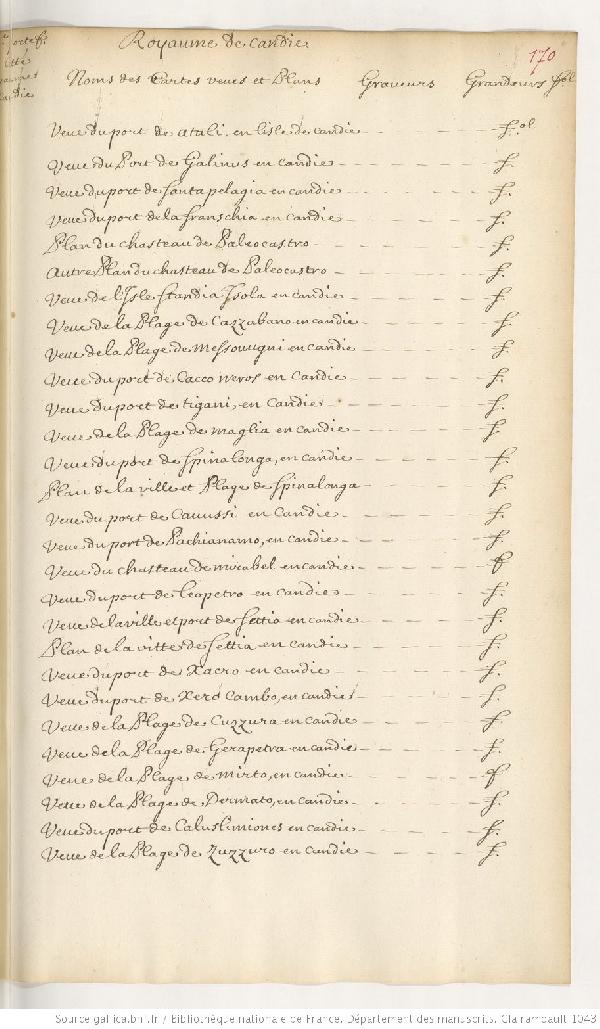 Royaume de Candie
170
Noms des Cartes veues et Plans Graveurs Grandeurs fol
Veue du port de Atali, en l'isle de candie f.ol
Veue du Port de Galinus en candie f.
Veue du port de santa pelagia en candie f.
Veue du port de la franschia en candie f.
Plan du chasteau de Paleocastro f.
Autre Plan du chasteau de Paleocastro f.
Veue de l'Isle Standia Isola en candie f.
Veue de la Plage de Cazzabano en candie f.
Veue de la Plage de Messourugni en candie f.
Veue du port de Cacco weros en Candie f.
Veue du port de tigani, en Candie f.
Veue de la Plage de maglia en candie f.
Veue du port de Spinalonga, en candie f.
Plan de la ville et Plage de Spinalonga f.
Veue du port de Cauussi en Candie f.
Veue du port de Pachianamo, en candie f.
Veue du chasteau de mirabel en candie f
Veue du port de Leopetro en candie f.
Veue de la ville et port de Settia en candie f.
Plan de la ville de Settia en candie f.
Veue du port de Xacro en candie f.
Veue du port de Xero Cambo, en candie f.
Veue de la Plage de Cuzzura en candie f.
Veue de la Plage de Gerapetra en candie f.
Veue de la Plage de mirto, en candie f
Veue de la Plage de Dermato, en candie f.
Veue du port de Caluslimiones en candie f.
Veue de la Plage de Zuzzuro en candie f.
Source gallica.bnf.fr / Bibliothèque nationale de France. Département des manuscrits. Clairambault 1043